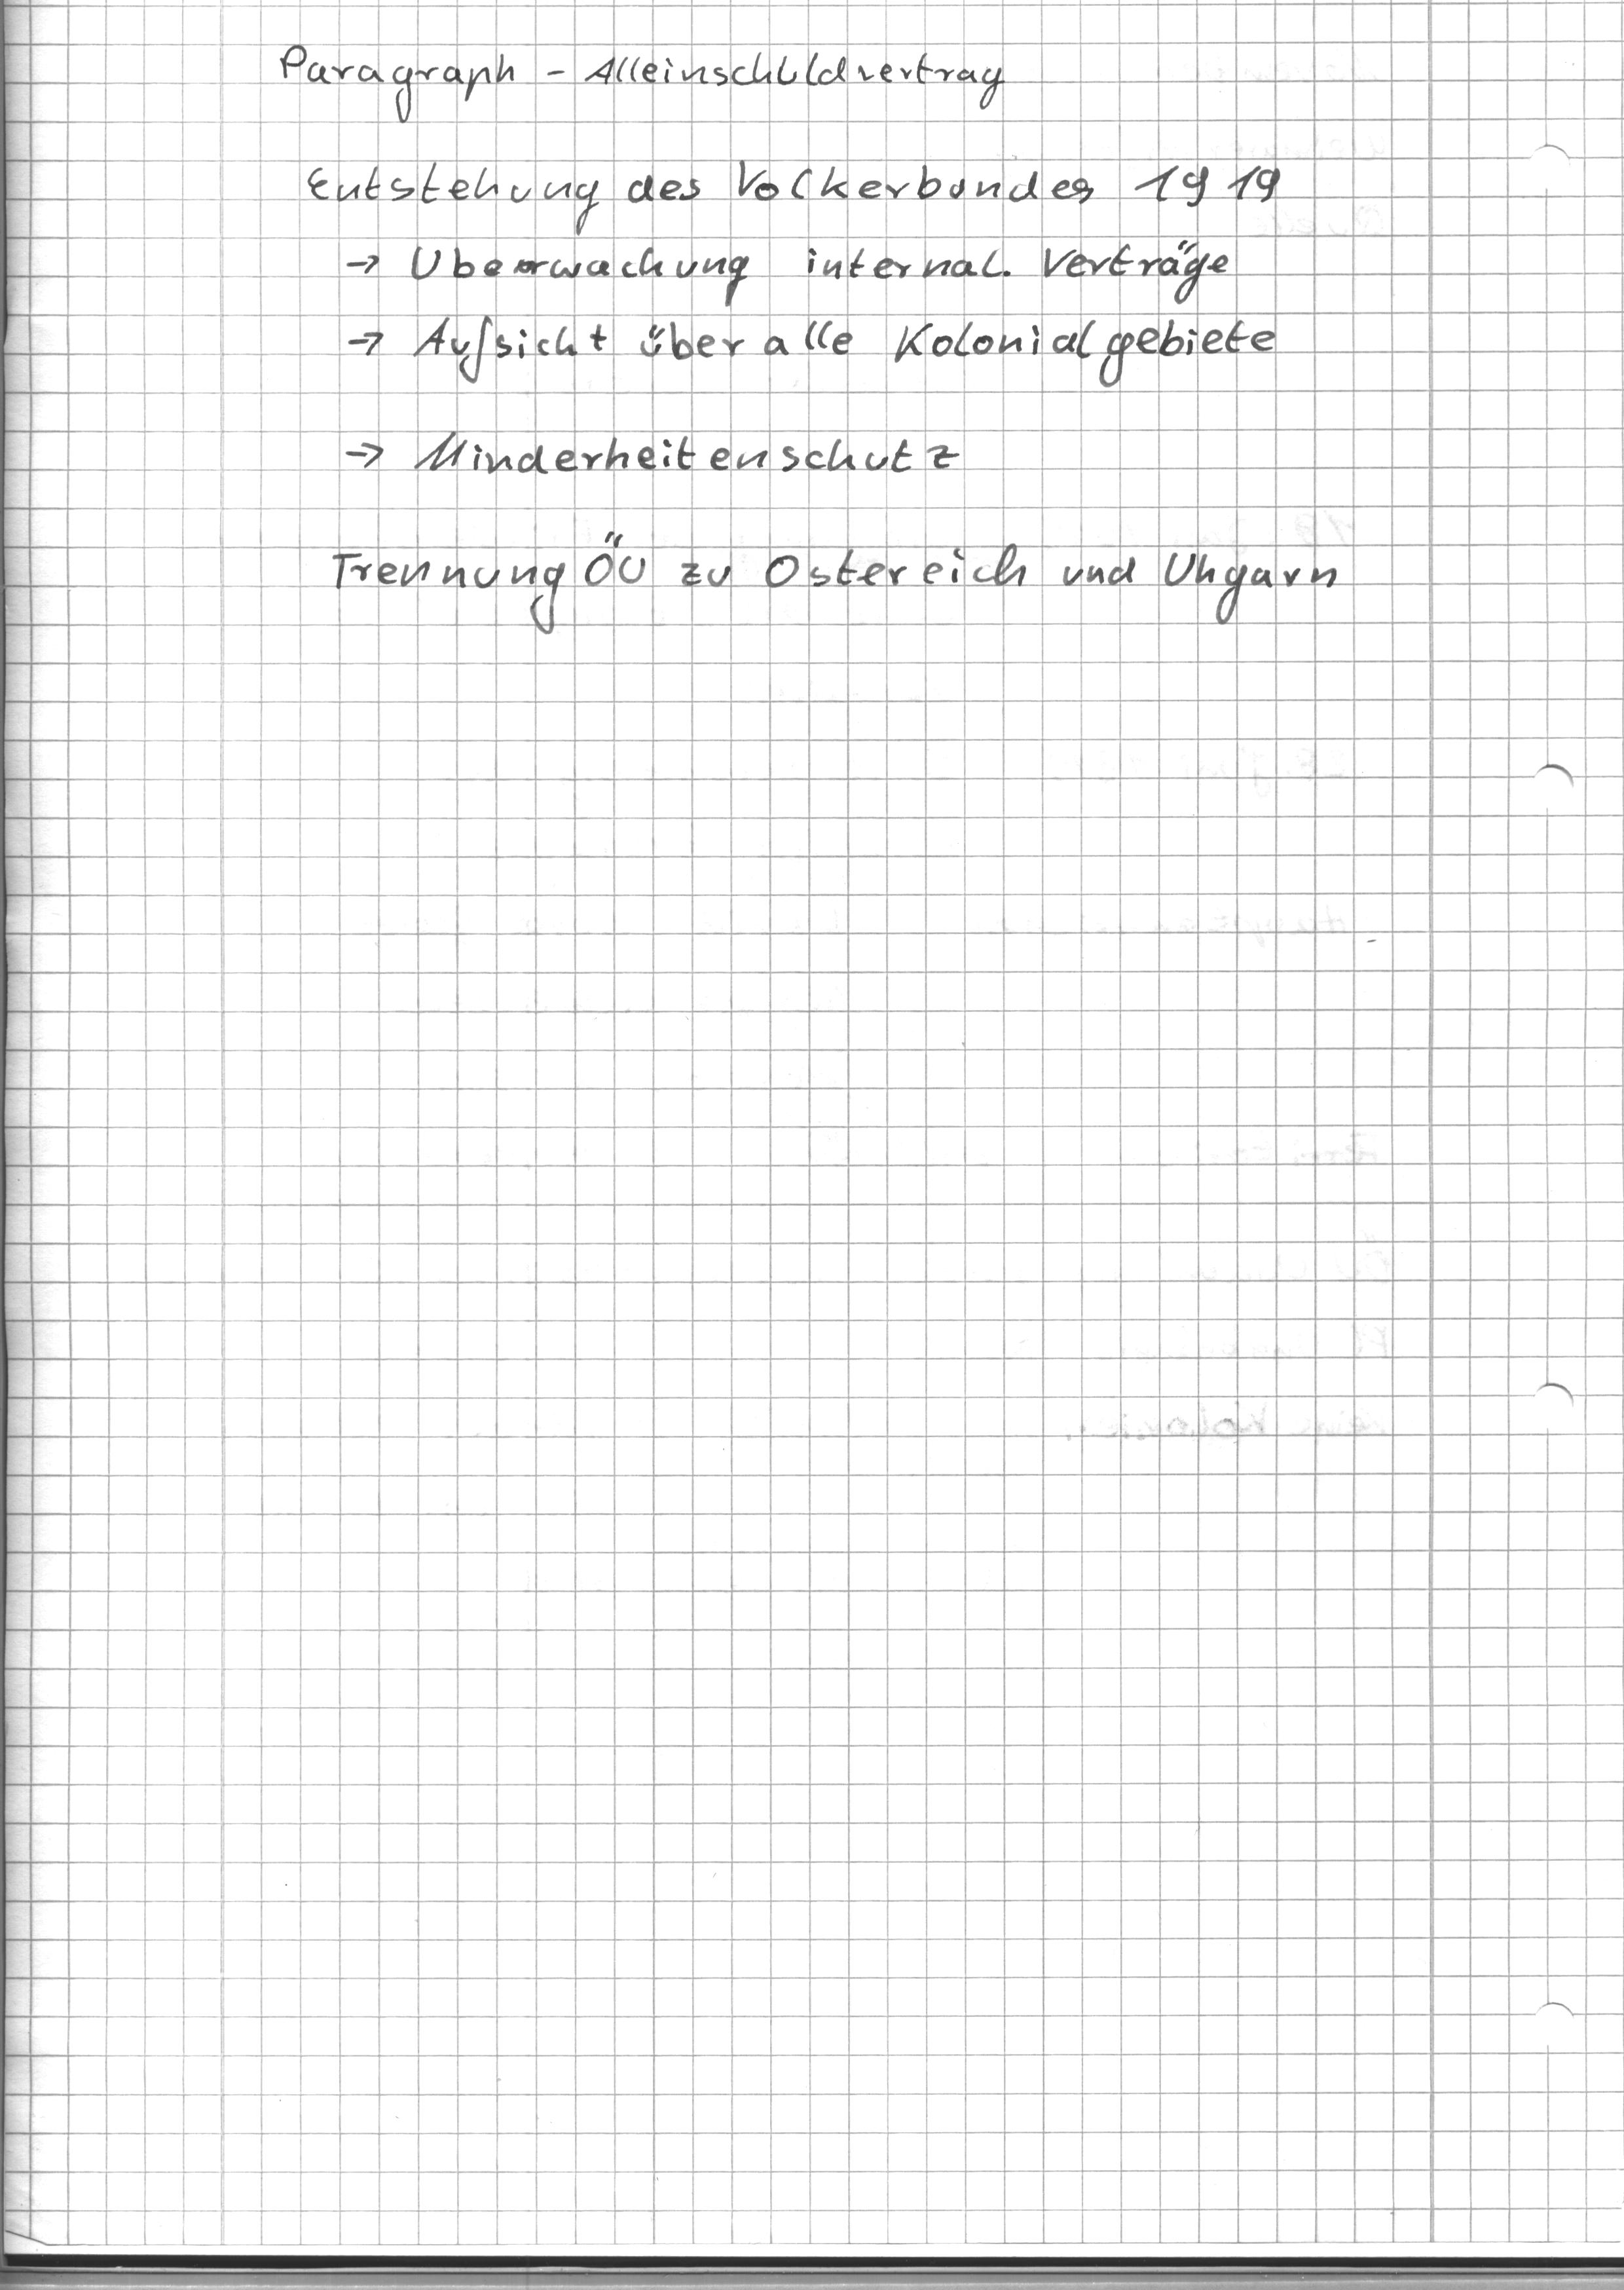 Paragraph - Alleinschuldvertrag
Entstehung des Volkerbundes 1919
→ Uberwachung internal. Verträge
→ Aufsicht über alle Kolonialgebiete
→ Minderheitenschutz
Trennung ÖU zu Ostereich und Ungarn